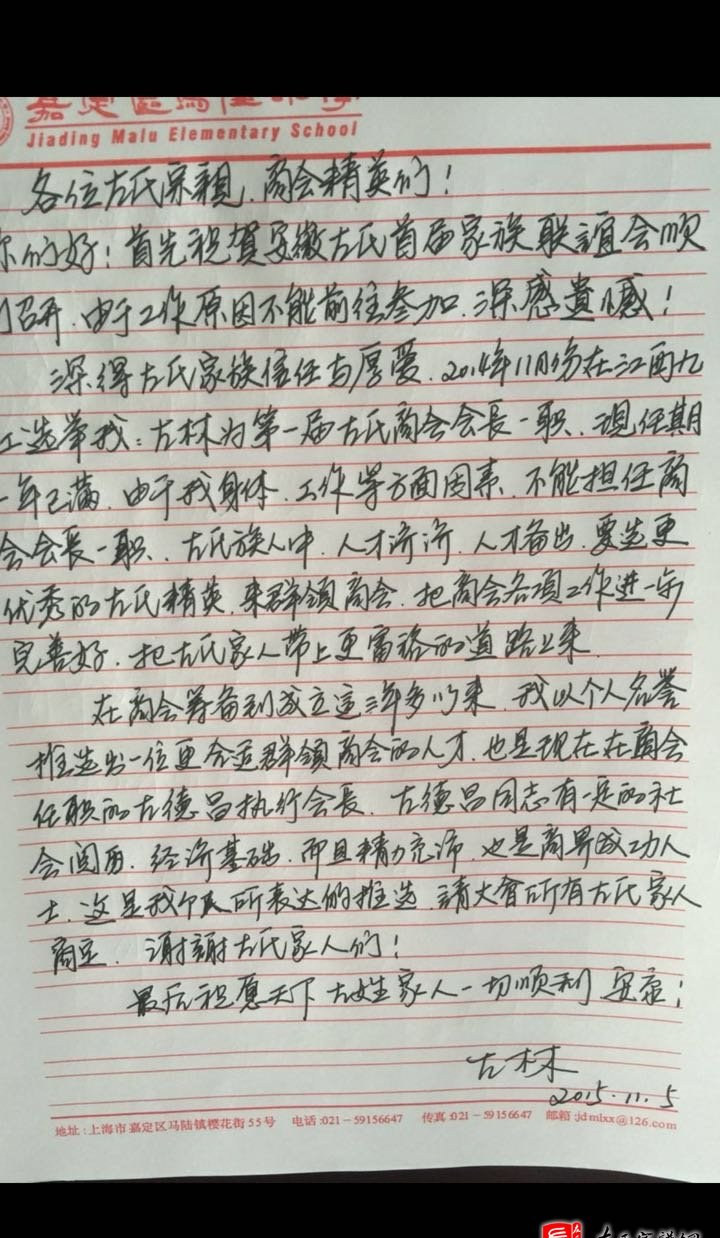 嘉定区马陆小学
Jiading Malu Elementary School
各位古氏宗親、商会精英们！
你们好！首先祝賀安徽古氏首届家族联誼会顺
利召开.由于工作原因不能前往参加.深感遺憾！
深得古氏家族信任与厚愛.2014年11月份在江西九
江选举我:古林为第一届古氏商会会長一职.現任期
一年已满.由于我身体.工作等方面因素.不能担任商
会会長一职.古氏族人中.人才济济.人才备出.要选更
优秀的古氏精英.来群領商会.把商会各項工作进一步
完善好.把古氏家人带上更富裕的道路上来.
在商会筹备到成立這三年多以来.我以个人名誉
推选出一位更合适群領商会的人才.也是现在在商会
任职的古德昌执行会長.古德昌同志有一定的社
会阅历.经济基础.而且精力充沛.也是商界成功人
士.这是我个人所表达的推选.請大會所有古氏家人
商定.谢謝古氏家人们！
最后祝愿天下古姓家人一切顺利 安康！
古林
2015.11.5
地址:上海市嘉定区马陆镇樱花街55号 电话:021-59156647 传真:021-59156647 邮箱:jdmlxx@126.com